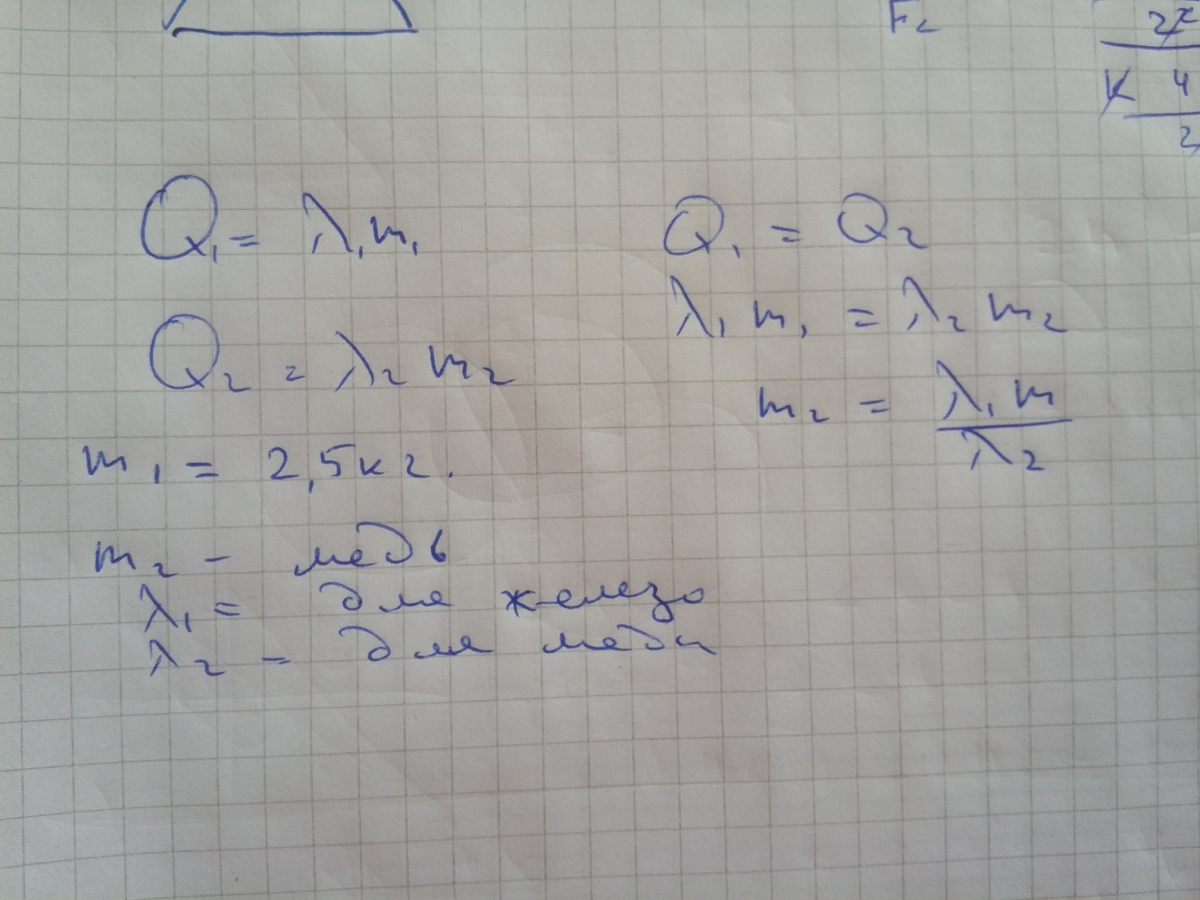 F₂
2
4
2
Q₁ = λ₁m₁
Q₂ = λ₂ m₂
m₁ = 2,5 кг.
m₂ - медь
λ₁ = для железо
λ₂ - для меди
Q₁ = Q₂
λ₁ m₁ = λ₂ m₂
m₂ = λ₁ m / λ₂